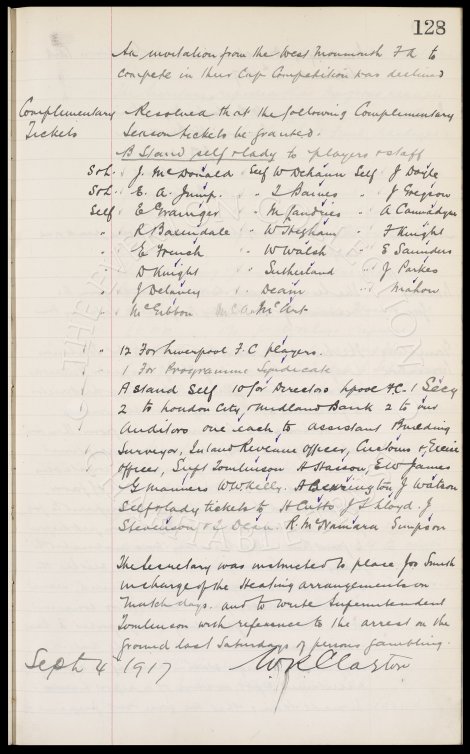 128
An invitation from the West Monmouth F.A. to
compete in their Cup Competition was declined
Complementary Tickets
Resolved that the following Complementary
Season tickets be granted.
B Stand self & lady to players & staff
S & L J. McDonald Self W Dehann Self J Doyle
S & L E. A. Jump. " T Baines " J Gregson
Self E Grainger " M Landries " A Camadger
" R Baxendale " W Higham " F Knight
" E French " W Walsh " E Saunders
" D Knight " Sutherland " J Parkes
" J Delaney " Deam " Mahon
" McGibbon
" 12 For Liverpool F.C players.
" 1 For Programme Syndicate
A Stand Self 10 for Directors Lpool F.C. 1 Secy
2 to London City & Midland Bank 2 to our
Auditors one each to assistant Building
Surveyor, Inland Revenue officer, Customs & Excise
officer, Supt Tomlinson A Stasson, E W James
G Manners W W Kelly. J Watson
Self & lady tickets to H Cutts J S Lloyd. J
Stevenson & J Dean. R. McNamara Simpson
The Secretary was instructed to place Jos Smith
in charge of the Heating arrangements on
Match days. and to write Superintendent
Tomlinson with reference to the arrest on the
ground last Saturday of persons gambling.
Sept 4 1917 W R Clayton